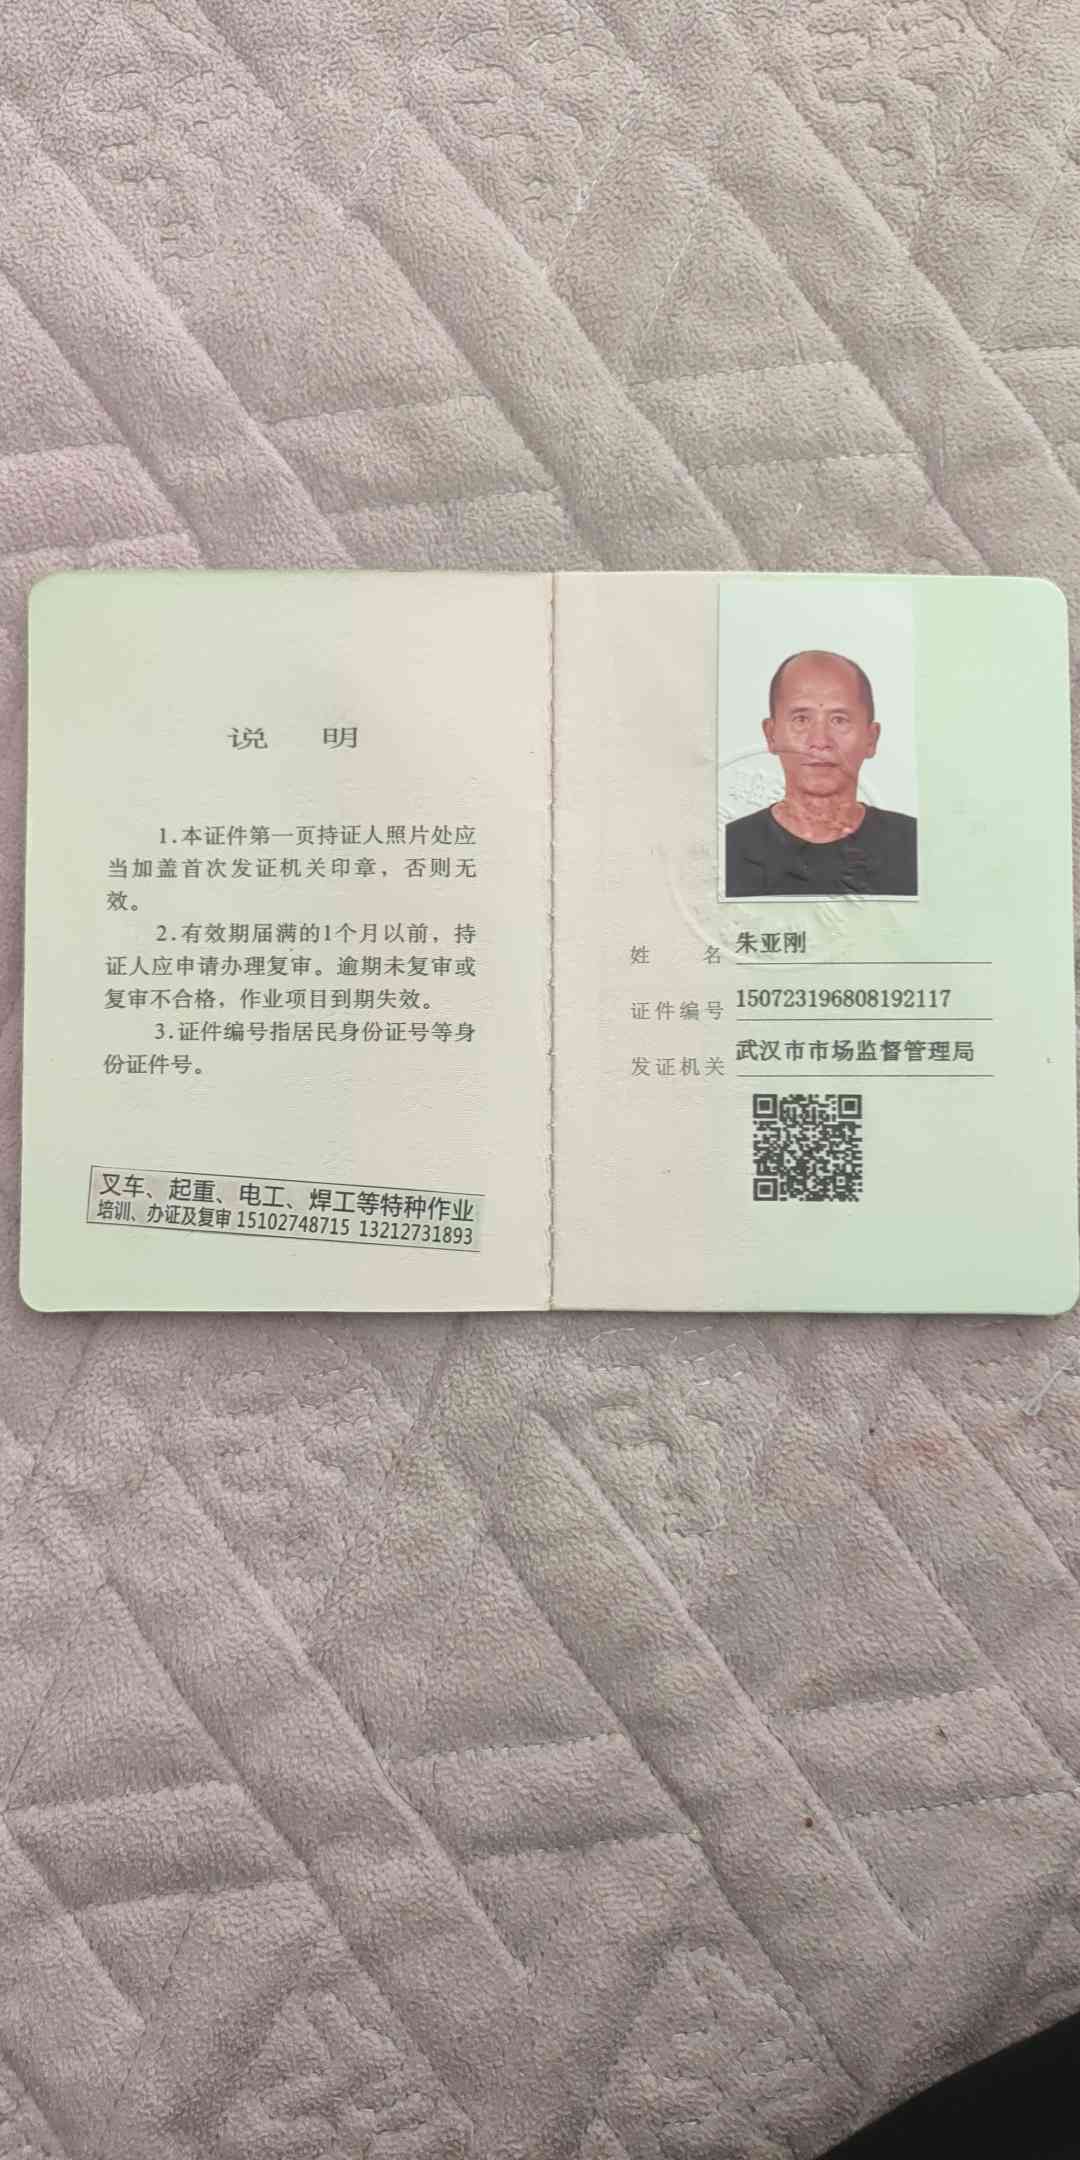 说 明
1.本证件第一页持证人照片处应
当加盖首次发证机关印章，否则无
效。
2.有效期届满的1个月以前，持
证人应申请办理复审。逾期未复审或
复审不合格，作业项目到期失效。
3.证件编号指居民身份证号等身
份证件号。
叉车、起重、电工、焊工等特种作业
培训、办证及复审 15102748715 13212731893
姓 名 朱亚刚
证件编号 150723196808192117
发证机关 武汉市市场监督管理局